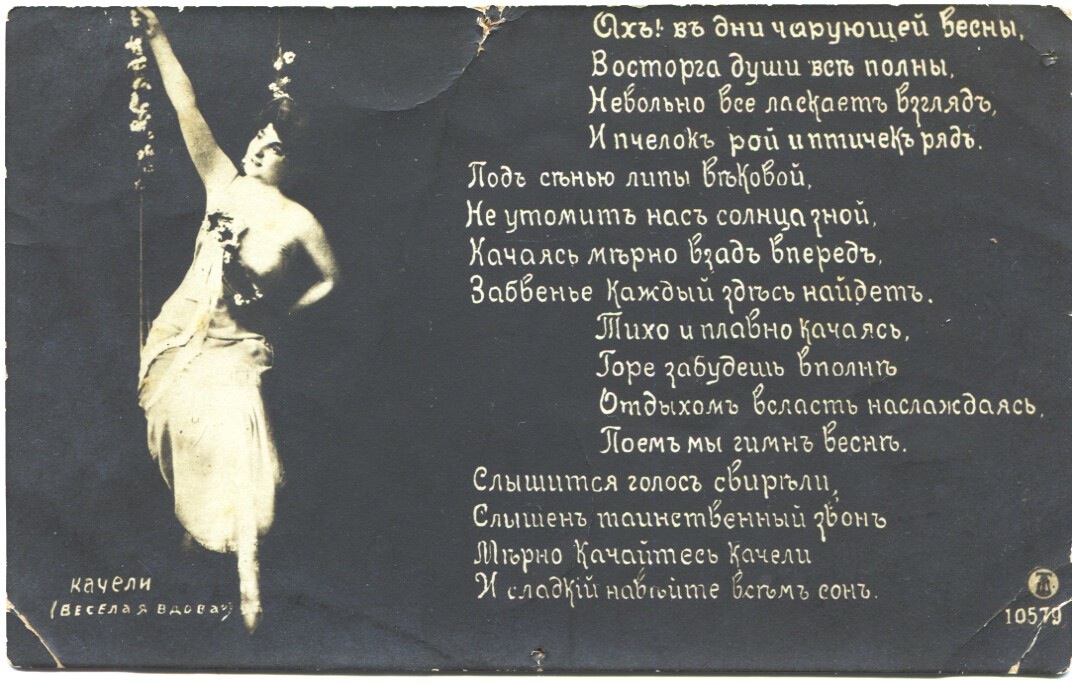 Ахъ! въ дни чарующей весны,
Восторга души всѣ полны,
Невольно все ласкаетъ взглядъ,
И пчелокъ рой и птичекъ рядъ.
Подъ сѣнью липы вѣковой,
Не утомитъ насъ солнца зной,
Качаясь мѣрно взадъ впередъ,
Забвенье каждый здѣсь найдетъ.
Тихо и плавно качаясь,
Горе забудешь вполнѣ
Отдыхомъ всласть наслаждаясь,
Поемъ мы гимнъ веснѣ.
Слышится голосъ свирѣли,
Слышенъ таинственный звонъ
Мѣрно качайтесь качели
И сладкій навѣйте всѣмъ сонъ.
качели
(ВЕСЕЛАЯ ВДОВА)
10579